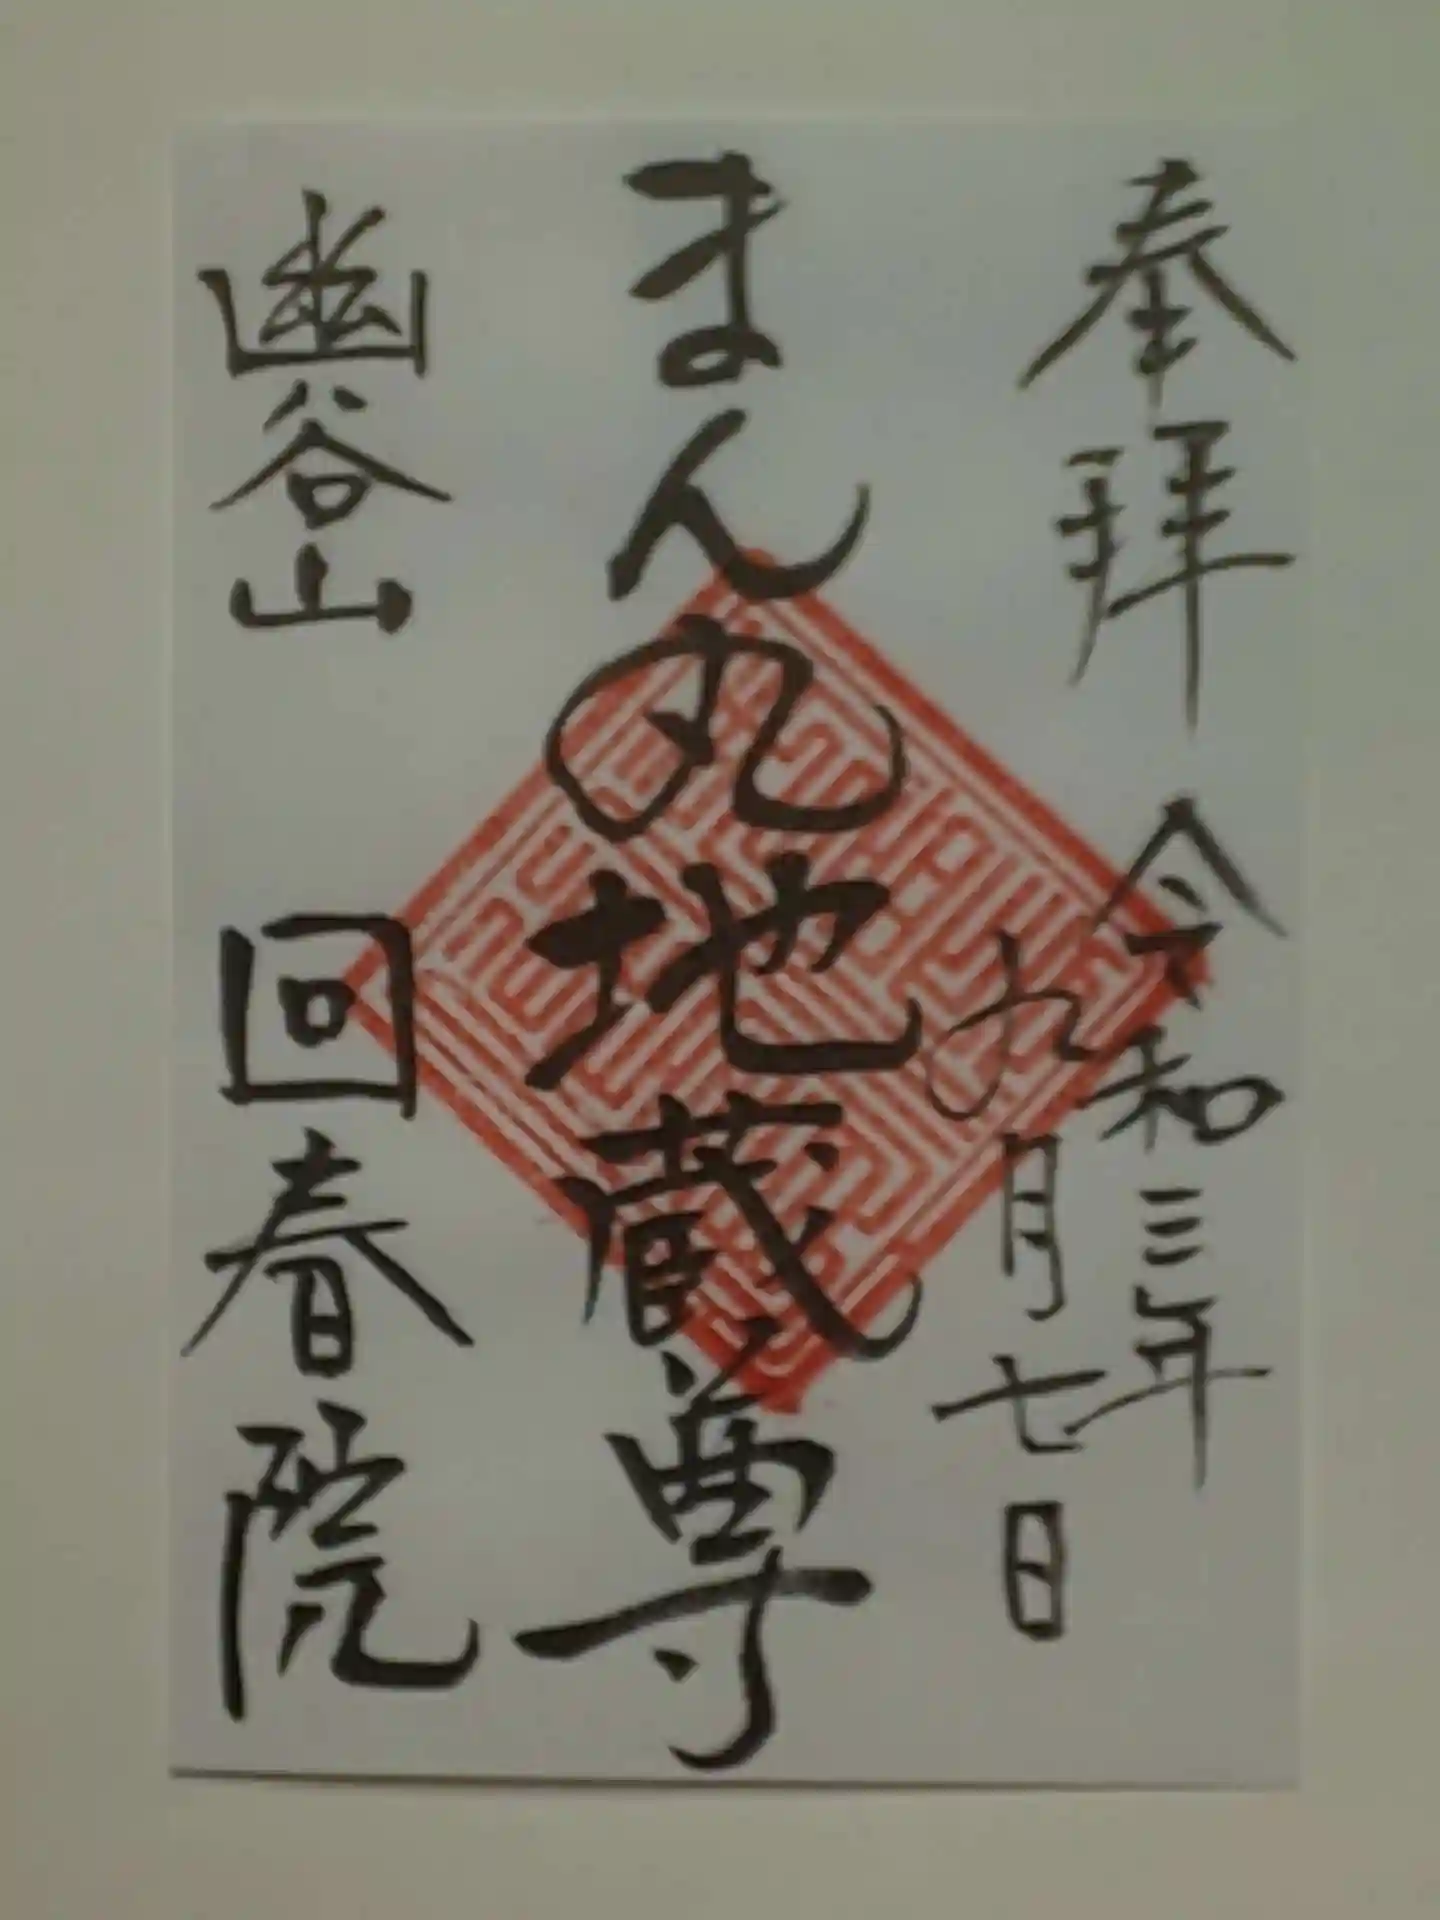 奉拝
令和三年
九月七日
まん丸地蔵尊
幽谷山
回春院